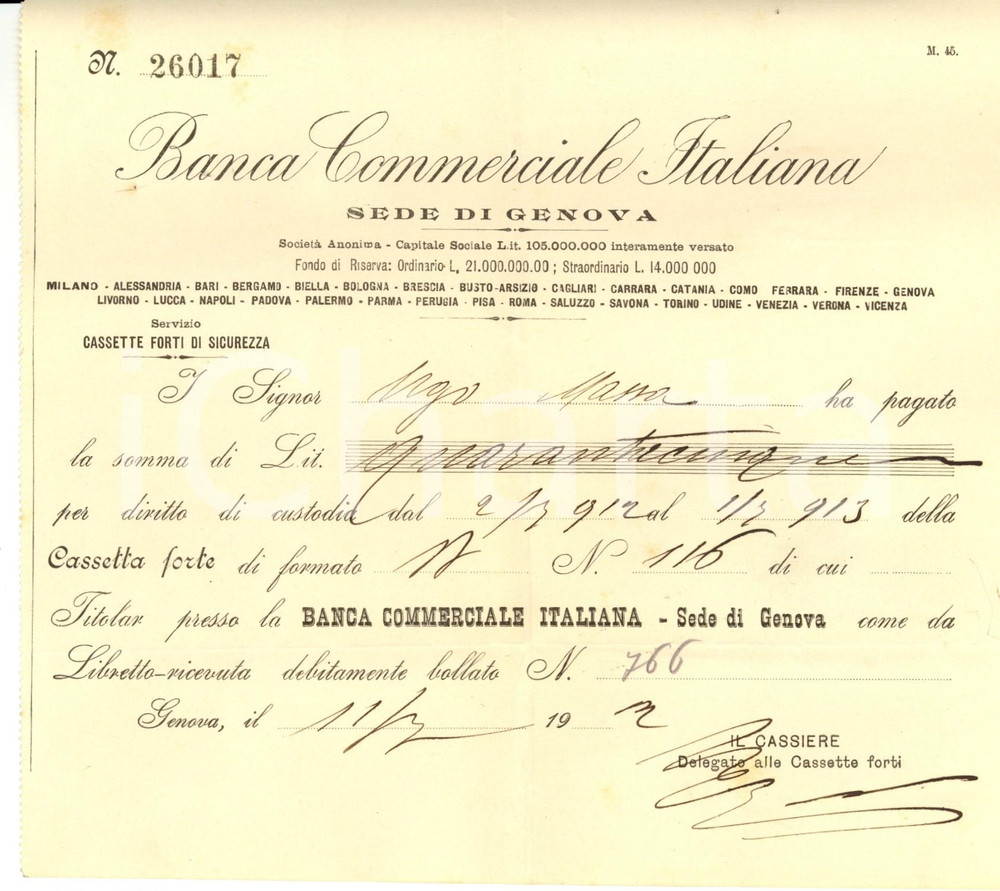 N. 26017
M. 45.
Banca Commerciale Italiana
SEDE DI GENOVA
Società Anonima - Capitale Sociale L.it. 105.000.000 interamente versato
Fondo di Riserva: Ordinario L, 21.000.000.00 ; Straordinario L. 14.000 000
MILANO - ALESSANDRIA - BARI - BERGAMO - BIELLA - BOLOGNA - BRESCIA - BUSTO-ARSIZIO - CAGLIARI - CARRARA - CATANIA - COMO FERRARA - FIRENZE - GENOVA
LIVORNO - LUCCA - NAPOLI - PADOVA - PALERMO - PARMA - PERUGIA - PISA - ROMA - SALUZZO - SAVONA - TORINO - UDINE - VENEZIA - VERONA - VICENZA
Servizio
CASSETTE FORTI DI SICUREZZA
I Signor Ugo Massa ha pagato
la somma di Lit. Quarantacinque
per diritto di custodia dal 2/7 912 al 1/7 913 della
Cassetta forte di formato N. 116 di cui
Titolar presso la BANCA COMMERCIALE ITALIANA - Sede di Genova come da
Libretto-ricevuta debitamente bollato N. 766
Genova, il 11/7 19 12
IL CASSIERE
Delegato alle Cassette forti
iCharta